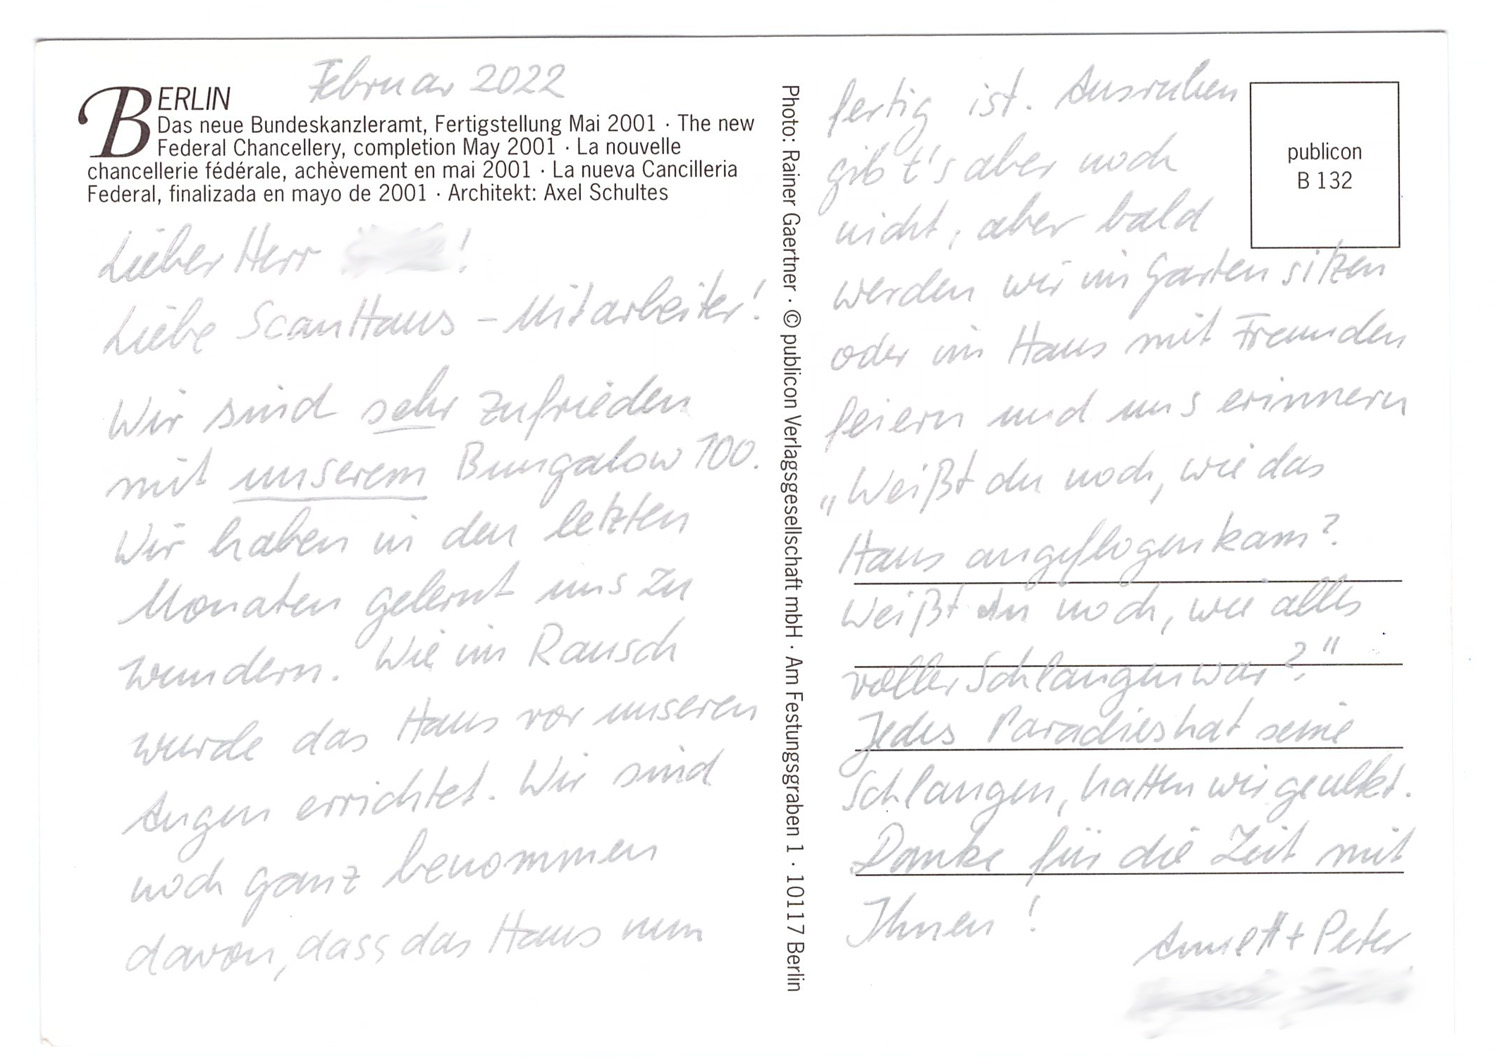 Februar 2022
BERLIN
Das neue Bundeskanzleramt, Fertigstellung Mai 2001 · The new
Federal Chancellery, completion May 2001 · La nouvelle
chancellerie fédérale, achèvement en mai 2001 · La nueva Cancilleria
Federal, finalizada en mayo de 2001 · Architekt: Axel Schultes
Lieber Herr !
Liebe ScanHaus - Mitarbeiter!
Wir sind sehr zufrieden
mit unserem Bungalow 100.
Wir haben in den letzten
Monaten gelernt uns zu
wundern. Wie im Rausch
wurde das Haus vor unseren
Augen errichtet. Wir sind
noch ganz benommen
davon, dass das Haus nun
Photo: Rainer Gaertner · © publicon Verlagsgesellschaft mbH · Am Festungsgraben 1 · 10117 Berlin
publicon
B 132
fertig ist. Ausruhen
gibt's aber noch
nicht, aber bald
werden wir im Garten sitzen
oder im Haus mit Freunden
feiern und uns erinnern
„Weißt du noch, wie das
Haus angeflogen kam?
Weißt du noch, wie alles
voller Schlangen war?"
Jedes Paradies hat seine
Schlangen, hatten wir geulkt.
Danke für die Zeit mit
Ihnen!
Annett + Peter